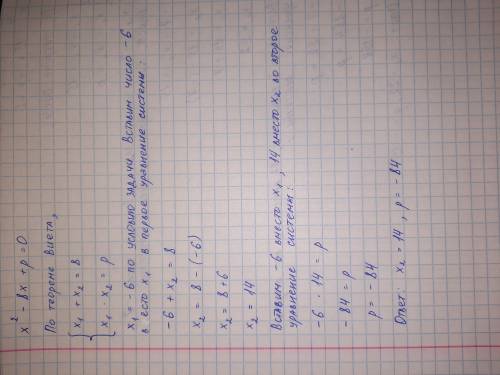 x² - 8x + p = 0
По теореме Виета,
x₁ + x₂ = 8
x₁ · x₂ = p
x₁ = -6 по условию задачи. Вставим число -6
в есто x₁ в первое уравнение системы:
-6 + x₂ = 8
x₂ = 8 - (-6)
x₂ = 8 + 6
x₂ = 14
Вставим -6 вместо x₁, 14 вместо x₂ во второе
уравнение системы:
-6 · 14 = p
-84 = p
p = -84
Ответ: x₂ = 14, p = -84